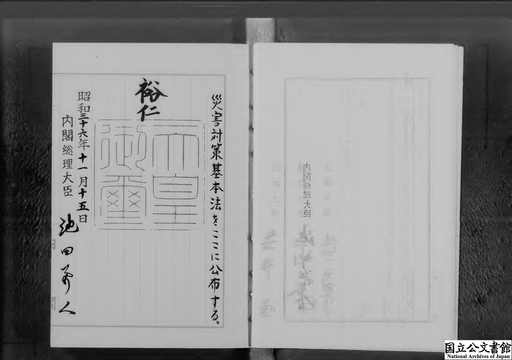 災害対策基本法をここに公布する。
裕仁
天皇
御璽
昭和三十六年十一月十五日
内閣総理大臣 池田勇人
内閣総理大臣
国立公文書館
National Archives of Japan